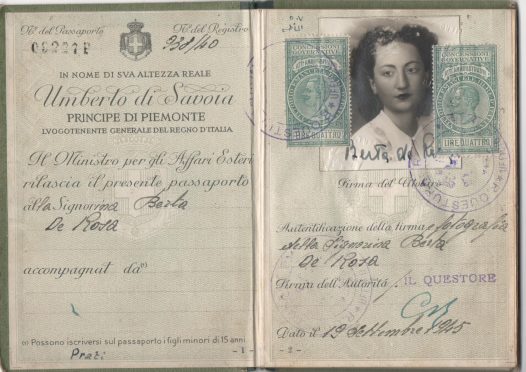 No. del Passaporto
No. del Registro
938/40
IN NOME DI SVA ALTEZZA REALE
Umberto di Savoia
PRINCIPE DI PIEMONTE
LVOGOTENENTE GENERALE DEL REGNO D'ITALIA
Il Ministro per gli Affari Esteri
rilascia il presente passaporto
alla Signorina Berta
De Rosa
accompagnat da (1)
(1) Possono iscriversi sul passaporto i figli minori di 15 anni
Prati
- 1 -
CONCESSIONI
GOVERNATIVE
LIRE QUATTRO
CONCESSIONI
GOVERNATIVE
LIRE QUATTRO
Berta de
Firma del Titolare
QUESTURA
Autentificazione della firma e fotografia
della Signorina Berta
De Rosa
Firma dell'Autorità IL QUESTORE
Dato il 19 Settembre 1945
- 2 -